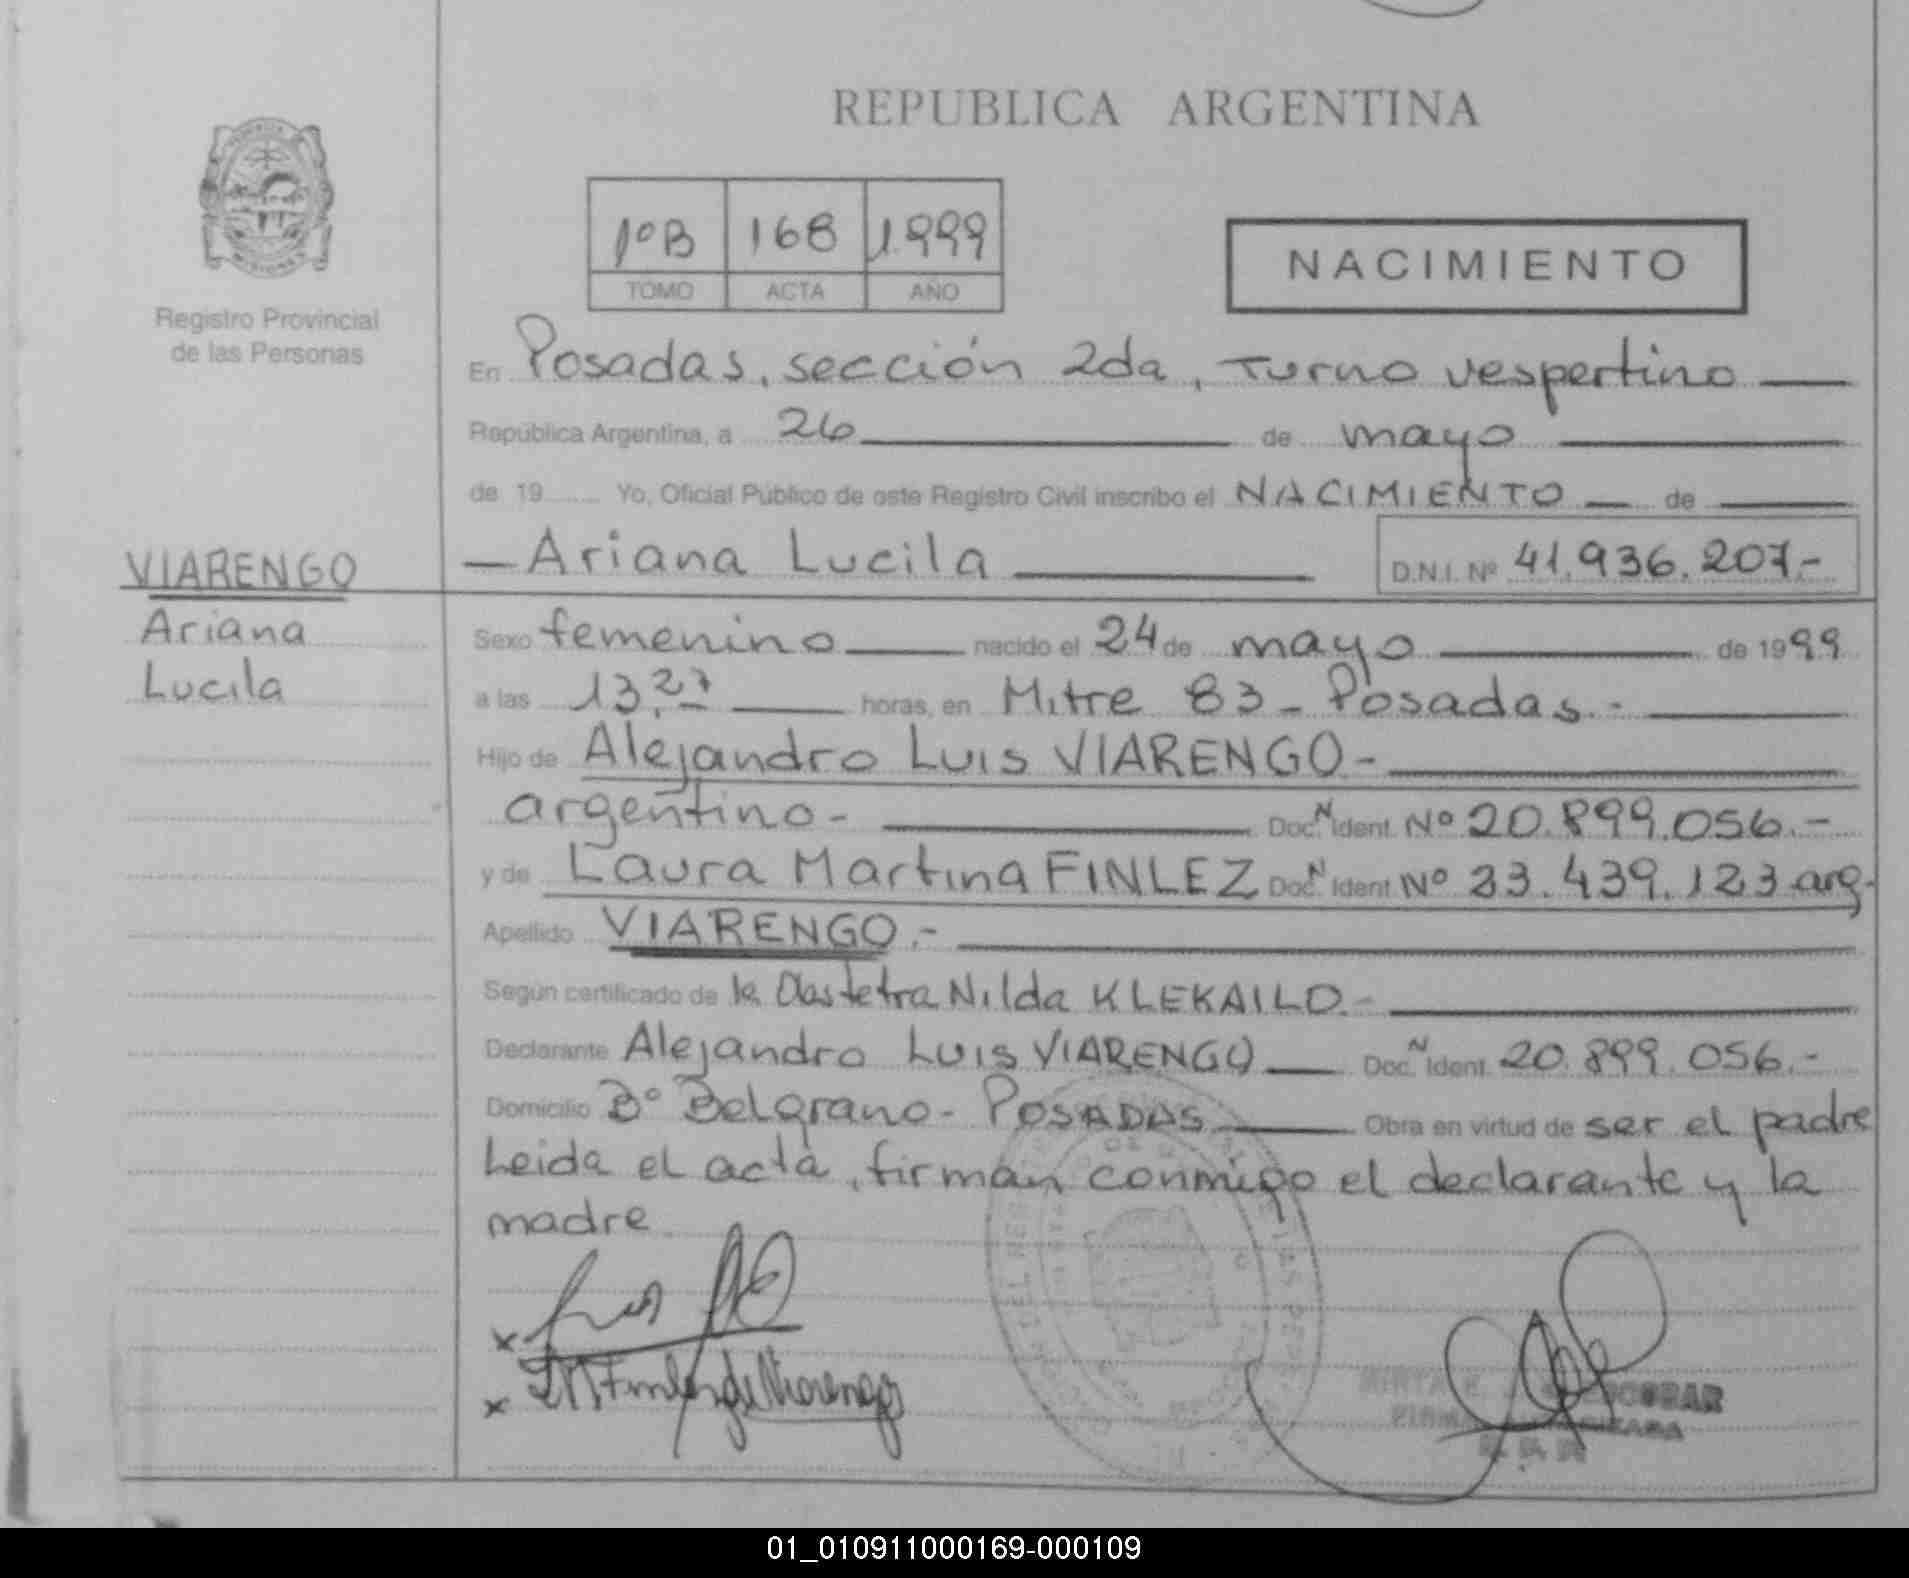 REPUBLICA ARGENTINA
MISIONES
Registro Provincial
de las Personas
1ºB 168 1999
TOMO ACTA AÑO
NACIMIENTO
En Posadas, sección 2da, Turno vespertino
República Argentina, a 26 de mayo
de 19 Yo, Oficial Público de este Registro Civil inscribo el NACIMIENTO de
VIARENGO
Ariana
Lucila
Ariana Lucila D.N.I. Nº 41.936.207.-
Sexo femenino nacido el 24 de mayo de 1999
a las 13,27 horas, en Mitre 83 - Posadas.-
Hijo de Alejandro Luis VIARENGO-
argentino- Doc. N Ident. Nº 20.899.056.-
y de Laura Martina FINLEZ Doc. N Ident. Nº 23.439.123 arg.
Apellido VIARENGO.-
Según certificado de la Obstetra Nilda KLEKAILO.-
Declarante Alejandro Luis VIARENGO Doc. N Ident. 20.899.056.-
Domicilio Bº Belgrano - POSADAS Obra en virtud de ser el padre
Leida el acta, firman conmigo el declarante y la
madre
01_010911000169-000109